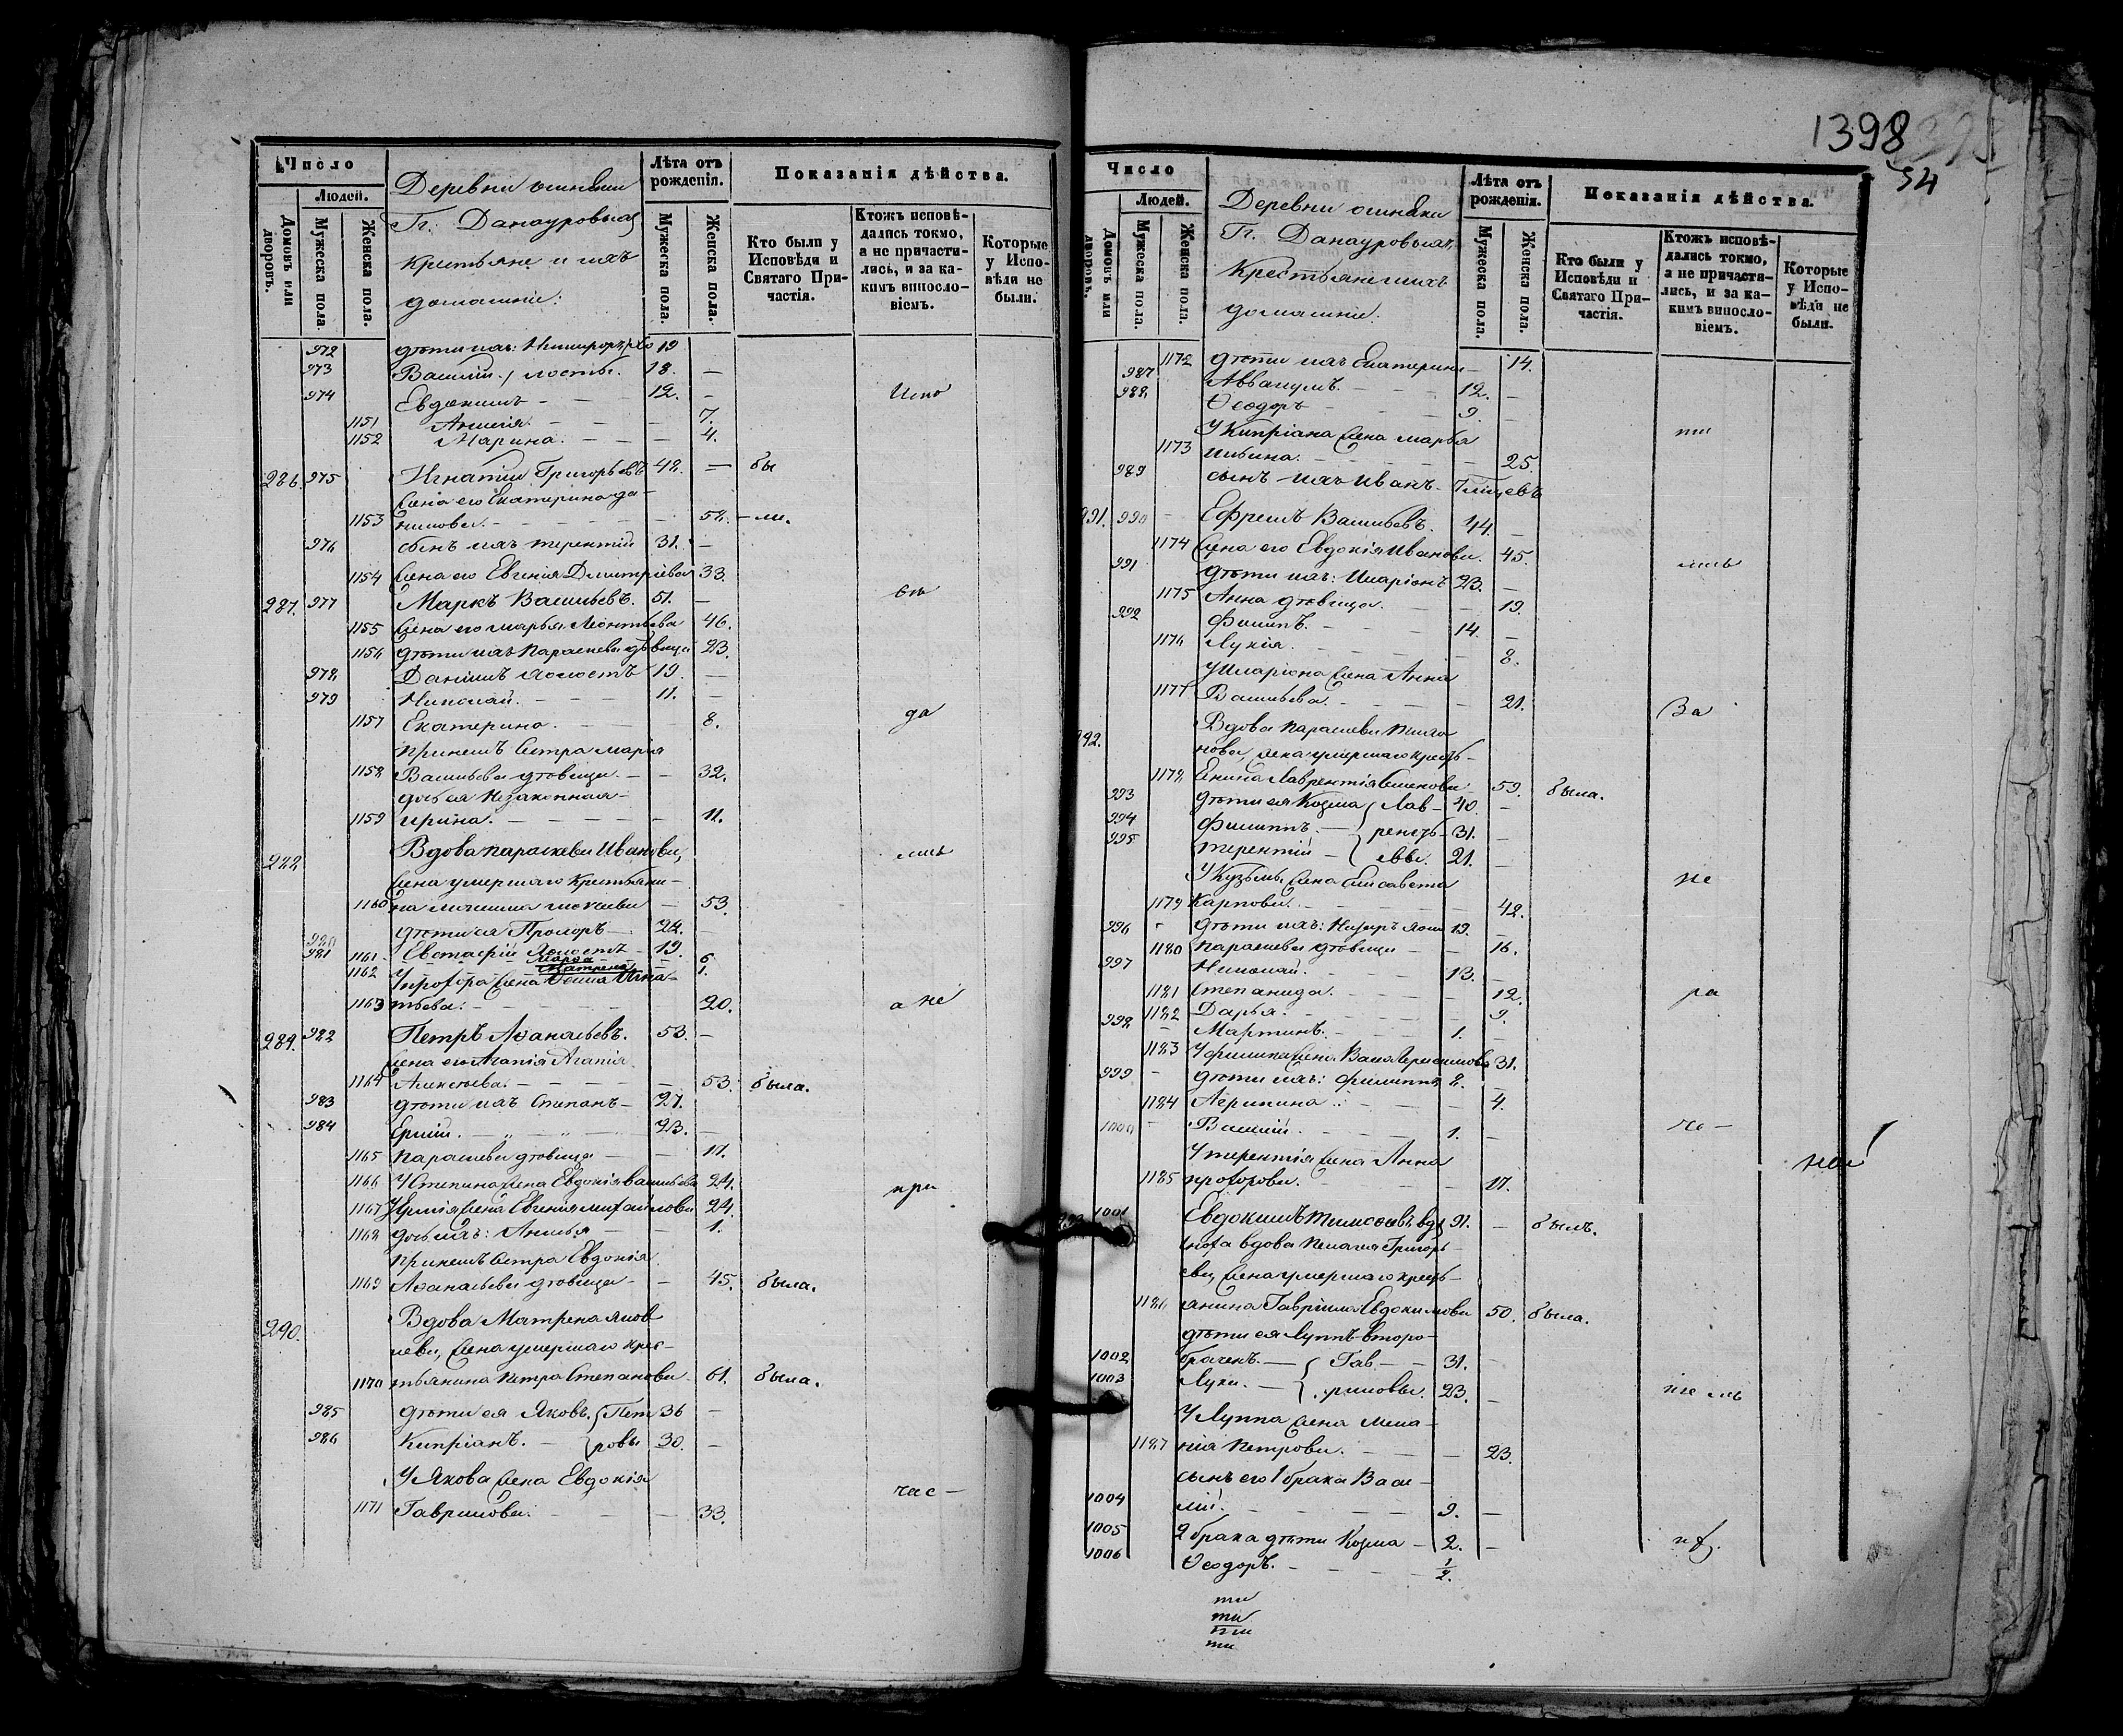 Число
Людей.
Домовъ или дворовъ.
Мужеска пола.
Женска пола.
Деревни
Гг. Данауровыхъ
крестьяне и ихъ
домашніе:
Лѣта отъ рожденія.
Мужеска пола.
Женска пола.
Показанія дѣйства.
Кто были у Исповѣди и Святаго Причастія.
Ктожъ исповѣдались токмо, а не причастились, и за какимъ винословіемъ.
Которые у Исповѣди не были.
972 дѣти ихъ: 19
973 Василій 18. —
974 Евдокимъ — 12. — Испо
1151 7.
1152 Марина. — 4.
286. 975 Игнатій Григорьевъ 48. — бы
жена его Екатерина Да-
1153 нилова. — 58. — ли.
976 сынъ ихъ Терентій 31. —
1154 жена его Евгенія Дмитріева 33.
287. 977 Маркъ Васильевъ. 51. — вы
1155 жена его Марья Леонтьева 46.
1156 дѣти ихъ Параскева дѣвица 23.
978 Даніилъ холостъ 19. —
979 Николай. — 11. —
1157 Екатерина. — 8. да
при немъ сестра Марья
1158 Васильева дѣвица. — 32.
дочь ея незаконная —
1159 Ирина. — 11.
288 Вдова Параскева Иванова, лись
жена умершаго крестьяни-
1160 на — 53.
980 дѣти ея Прохоръ — 22. —
981 1161 Евстафій холостъ — 19. 6
Марфа
1162 1.
У Прохора жена Игна-
1163 тьева. — 20. а не
289. 982 Петръ Аѳанасьевъ. 53. —
жена его Агапія
1164 Алексѣева. — 53. была.
983 дѣти ихъ Степанъ — 27.
984 Ермій. — 23. —
1165 Параскева дѣвица — 17.
1166 У Степана жена Евдокія Васильева 24. при
1167 У Ермія жена Евгенія Михайлова 24.
1168 дочь ихъ: — 1.
при немъ сестра Евдокія
1169 Аѳанасьева дѣвица — 45. была.
290. Вдова Матрена Яков-
лева, жена умершаго крес-
1170 тьянина Петра Степанова 61. была.
985 дѣти ея Яковъ { Пет- 36 —
986 Кипріанъ. — { ровы 30. —
У Якова жена Евдокія
1171 Гаврилова. — 33. час-
1398
54
Число
Людей.
Домовъ или дворовъ.
Мужеска пола.
Женска пола.
Деревни
Гг. Данауровыхъ
крестьяне и ихъ
домашніе.
Лѣта отъ рожденія.
Мужеска пола.
Женска пола.
Показанія дѣйства.
Кто были у Исповѣди и Святаго Причастія.
Ктожъ исповѣдались токмо, а не причастились, и за какимъ винословіемъ.
Которые у Исповѣди не были.
1172 дѣти ихъ Екатерина — 14.
987 Аввакумъ. — 12. —
988 Ѳеодоръ — 9.
У Кипріана жена Марья ти
1173 Ильина. — 25.
989 сынъ ихъ Иванъ —
291. 990 Ефремъ Васильевъ. 44. —
1174 жена его Евдокія Иванова. 45. лись
991 дѣти ихъ: Иларіонъ 23. —
1175 Анна дѣвица. — 19.
992 Филиппъ. — 14. —
1176 Лукія. — 8.
У Иларіона жена Анна
1177 Васильева. — 21. За
292. Вдова Параскева
жена умершаго кресть-
1178 янина Лаврентія Семенова 59. была.
993 дѣти ея Козма { Лав- 40. —
994 Филиппъ. — { рентъ- 31. —
995 Терентій — { евы. 21. —
У Кузьмы жена Елисавета не
1179 Карпова. — 42.
996 дѣти ихъ: 19. —
1180 Параскева дѣвица — 16.
997 Николай. — 13. —
1181 Степанида. — 12. ра
1182 Дарья. — 9.
998 Мартинъ. — 1. —
1183 У Филиппа жена 31.
999 дѣти ихъ: Филиппъ 8. —
1184 Агрипина — 4.
1000 Василій. — 1. — че-
У Терентія жена Анна ной
1185 Прохорова. — 17.
1001 Евдокимъ 91. — былъ.
сноха вдова Пелагея Григорь-
ева, жена умершаго кресть-
1186 янина Гавріила Евдокимова 50. была.
дѣти ея Луппъ второ-
1002 браченъ. — { Гав- — 31. —
1003 Лука. — { риловы. 23. — не мъ
У Луппа жена Мела-
1187 нія Петрова. — 23.
сынъ его 1 брака Васи-
1004 лій. — 9. —
1005 2 брака дѣти Козма — 2. — их.
1006 Ѳеодоръ. — 1/2.
ти
ти
ти
ти